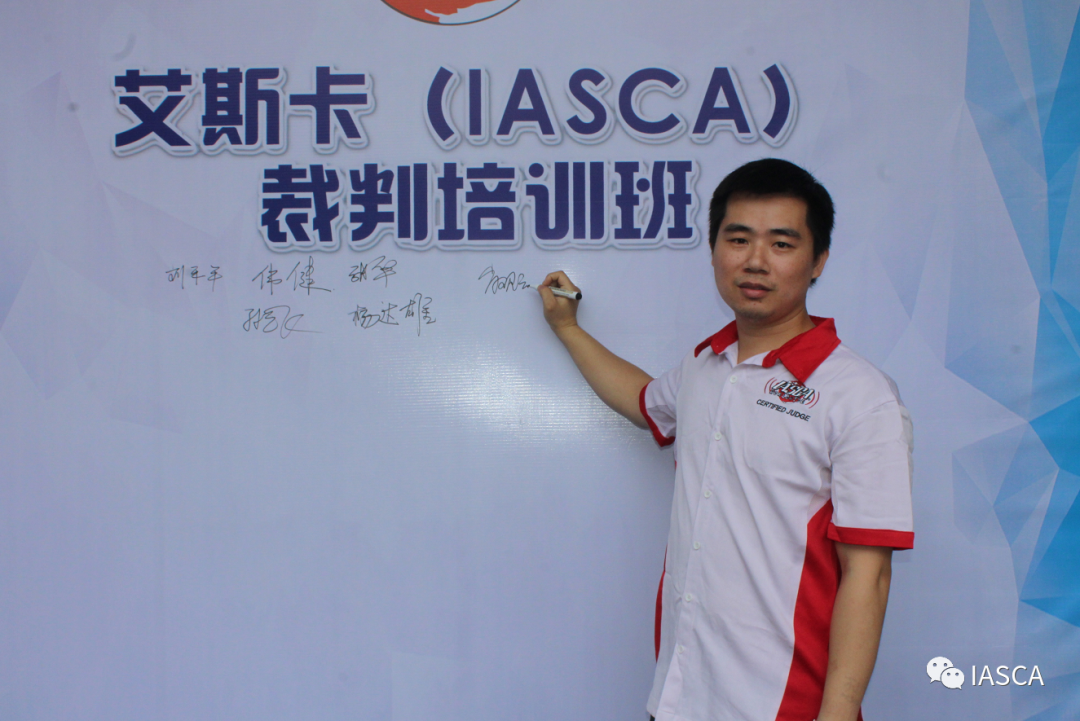 艾斯卡（IASCA）
裁判培训班
伟健
杨达雄
IASCA
CERTIFIED JUDGE
IASCA